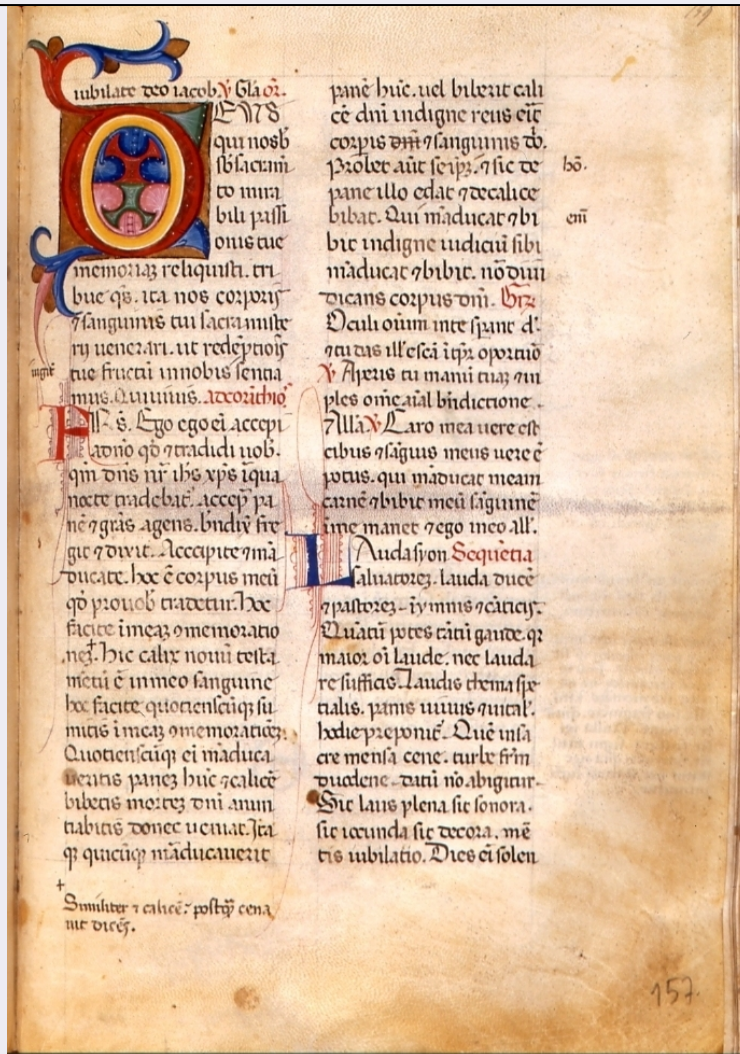 iubilate deo iacob. ℣ Gl̃a or̃.
DEUS
qui nob̃
sb̃ sacram̃
to mira
bili passi
onis tue
memoriaꝫ reliquisti. tri
bue q̃s. ita nos corporis
⁊ sanguinis tui sacra miste
rii venerari. ut redẽptiõis
tue fructũ in nobis sentia
mus. Qui vivis. ad corinthios
FR̃S. Ego eĩ accepi
a dño qđ ⁊ tradidi uob̃.
qm̃ dñs nr̃ ihs xp̃s ĩ qua
nocte tradebat̃. accep̃ pa
nẽ ⁊ gr̃as agens. b̃ndix̃ fre
git ⁊ dixit. Accipite ⁊ mã
ducate. hoc ẽ corpus meũ
qđ pro uob̃ tradetur. Hoc
facite ĩ meaꝫ ꝯmemoratio
neꝫ. Hic calix nouũ testa
mẽtũ ẽ in meo sanguine
hoc facite quotienscũqꝫ su
mitis ĩ meaꝫ ꝯmemorationeꝫ.
Quotienscũqꝫ eĩ mãduca
ueritis paneꝫ hũc ⁊ calicẽ
bibetis morteꝫ dñi anun
tiabitis donec ueniat. Ita
qꝫ quicũqꝫ mãducauerit
+
Similiter ⁊ calicẽ: postq̃ꝫ cena
uit dicẽs.
panẽ hũc. uel biberit cali
cẽ dñi indigne reus erit
corp̃is dñi ⁊ sanguinis dñ.
Probet aũt seip̃ꝫ. ⁊ sic de hõ.
pane illo edat ⁊ de calice
bibat. Qui mãducat ⁊ bi em̃
bit indigne iudiciũ sibi
mãducat ⁊ bibit. nõ diiu
dicans corpus dñi. Gr̃
Oculi oĩum in te sperãt d̃.
⁊ tu das ill̃ escã ĩ tp̃r oportuõ
℣ Aperis tu manũ tuaꝫ ⁊ im
ples om̃e aĩal b̃ndictione.
All̃a ℣ Caro mea uere est
cibus ⁊ sãguis meus uere ẽ
potus. qui mãducat meam
carnẽ ⁊ bibit meũ sãguinẽ
ĩ me manet ⁊ ego in eo all̃.
LAuda syon Sequẽtia
saluatoreꝫ. lauda ducẽ
⁊ pastoreꝫ. ĩ ymnis ⁊ cãticis.
Quãtũ potes tãtũ gaude. qꝫ
maior oĩ laude. nec lauda
re sufficis. Laudis thema spe
tialis. panis uiuus ⁊ uital̃.
hodie preponit̃. Quẽ in sa
cre mensa cene. turbe fr̃m
duodene. datũ nõ abigitur.
Sit laus plena sit sonora.
sit iocunda sit decora. mẽ
tis iubilatio. Dies eĩ solen
157.